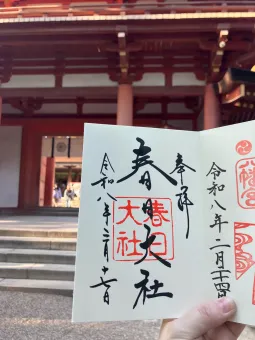 令和八年二月十四
奉拝
春日大社
春日
大社
令和八年二月十七日